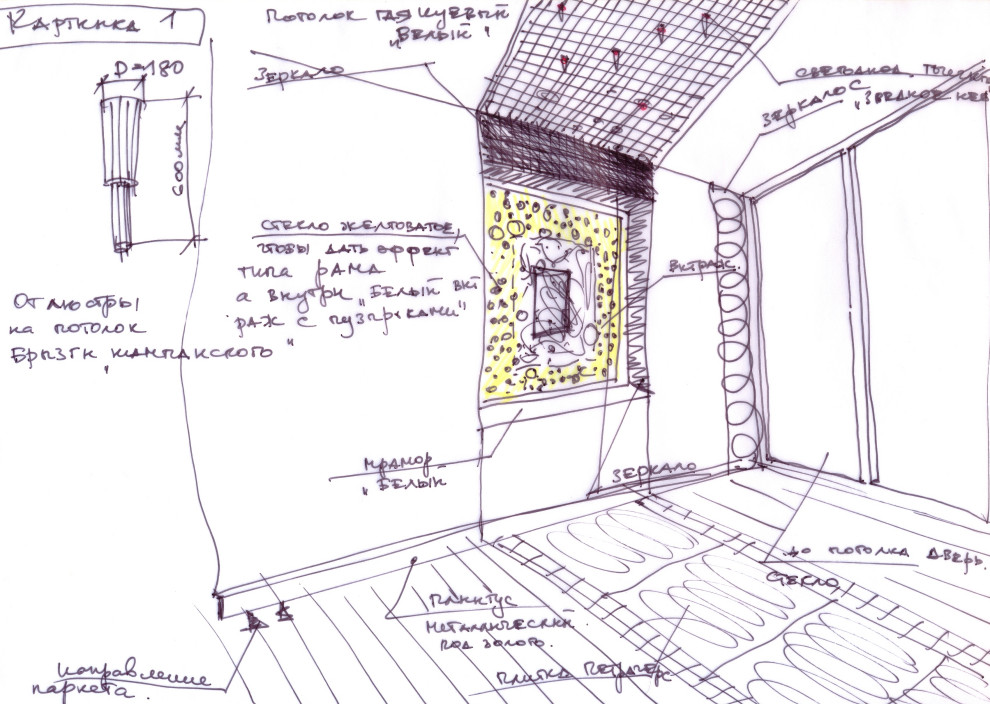 Картинка 1
D=180
600мм
От люстры
на потолок
Брызги „шампанского"
Потолок
„Белый"
Зеркало
Светодиод. точечн
Зеркало с
Стекло желтоватое,
чтобы дать эффект
типа рама
а внутри „Белый вит
раж с пузырьками"
Витраж.
Мрамор
„Белый
Зеркало
до потолка дверь.
стекло
Плинтус
металлический
под золото.
Плитка
Направление
паркета.